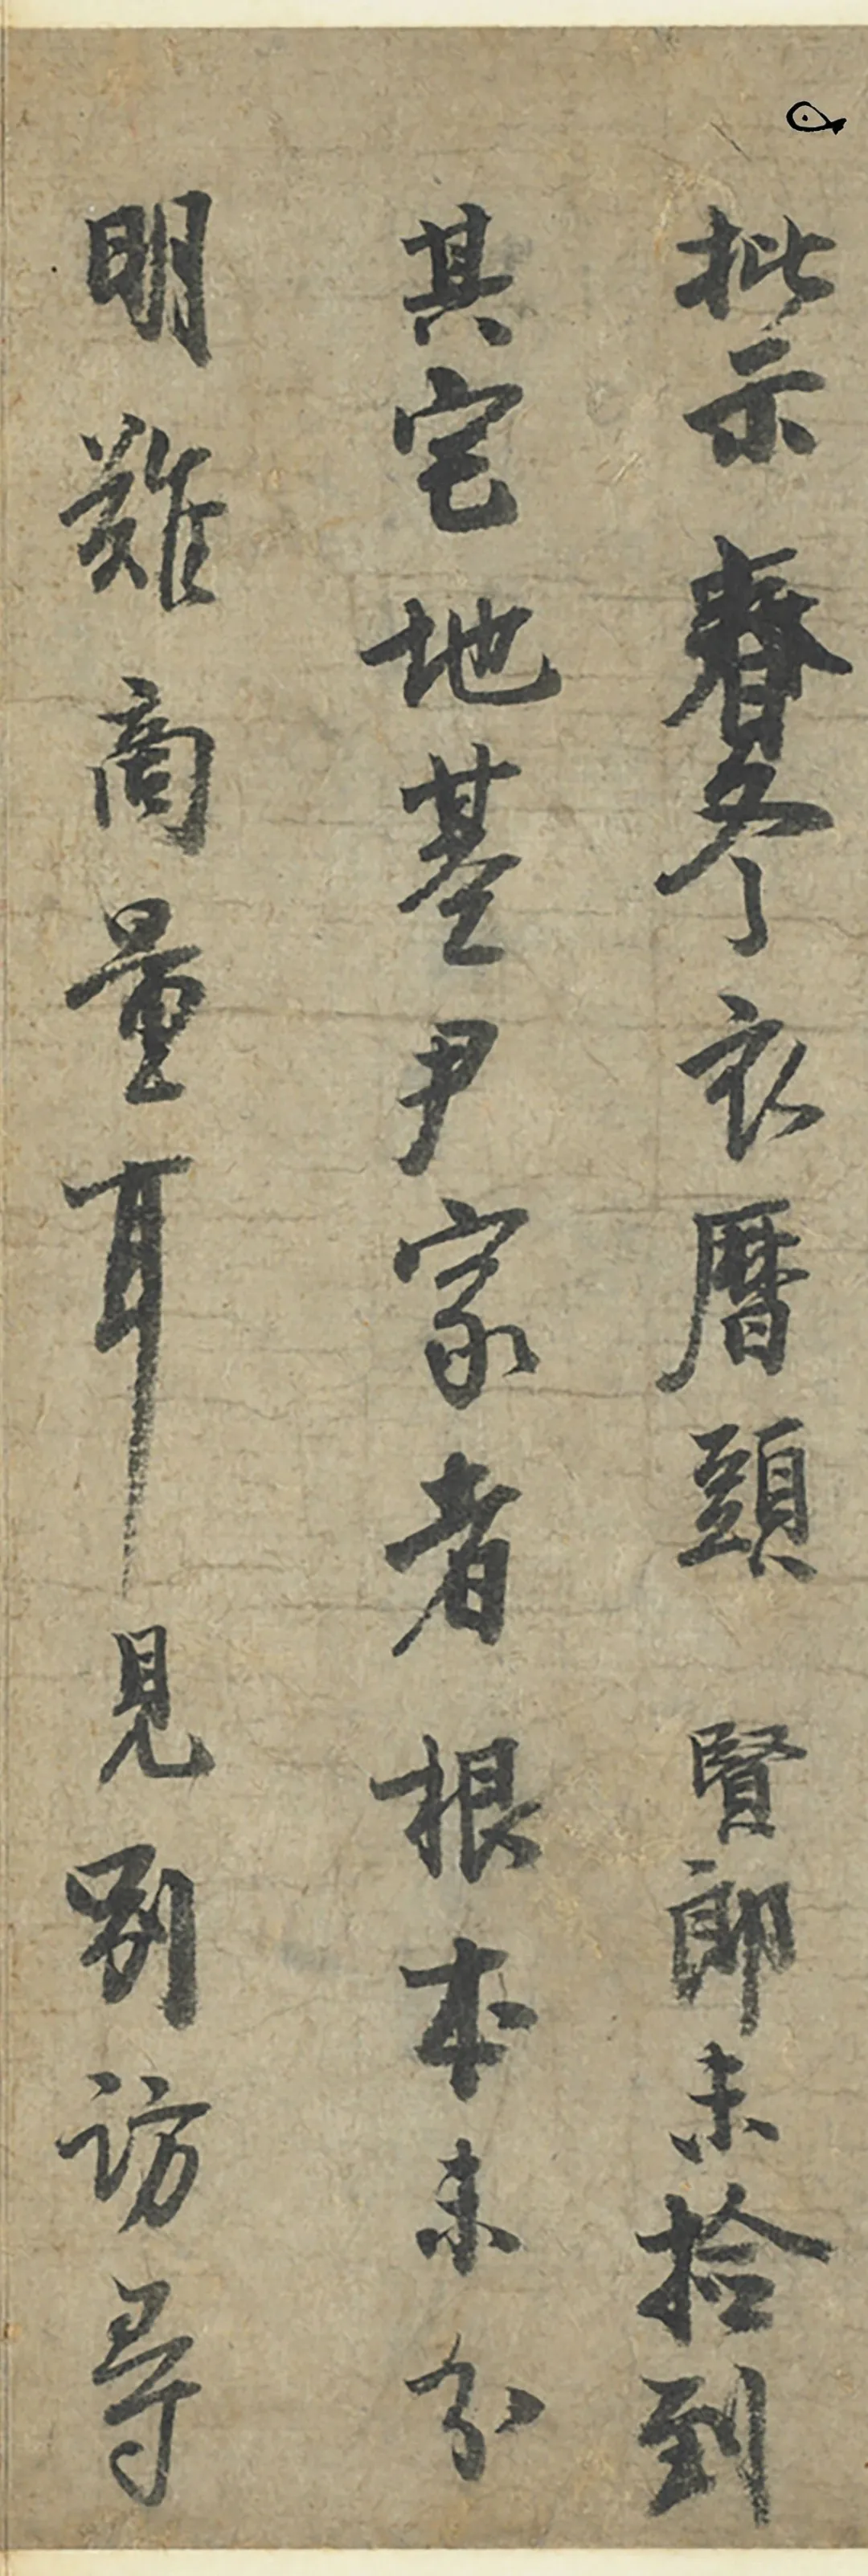 批示春冬衣曆頭 賢郎未拾到
其宅地基尹家者根本未分
明難商量耳見別訪尋